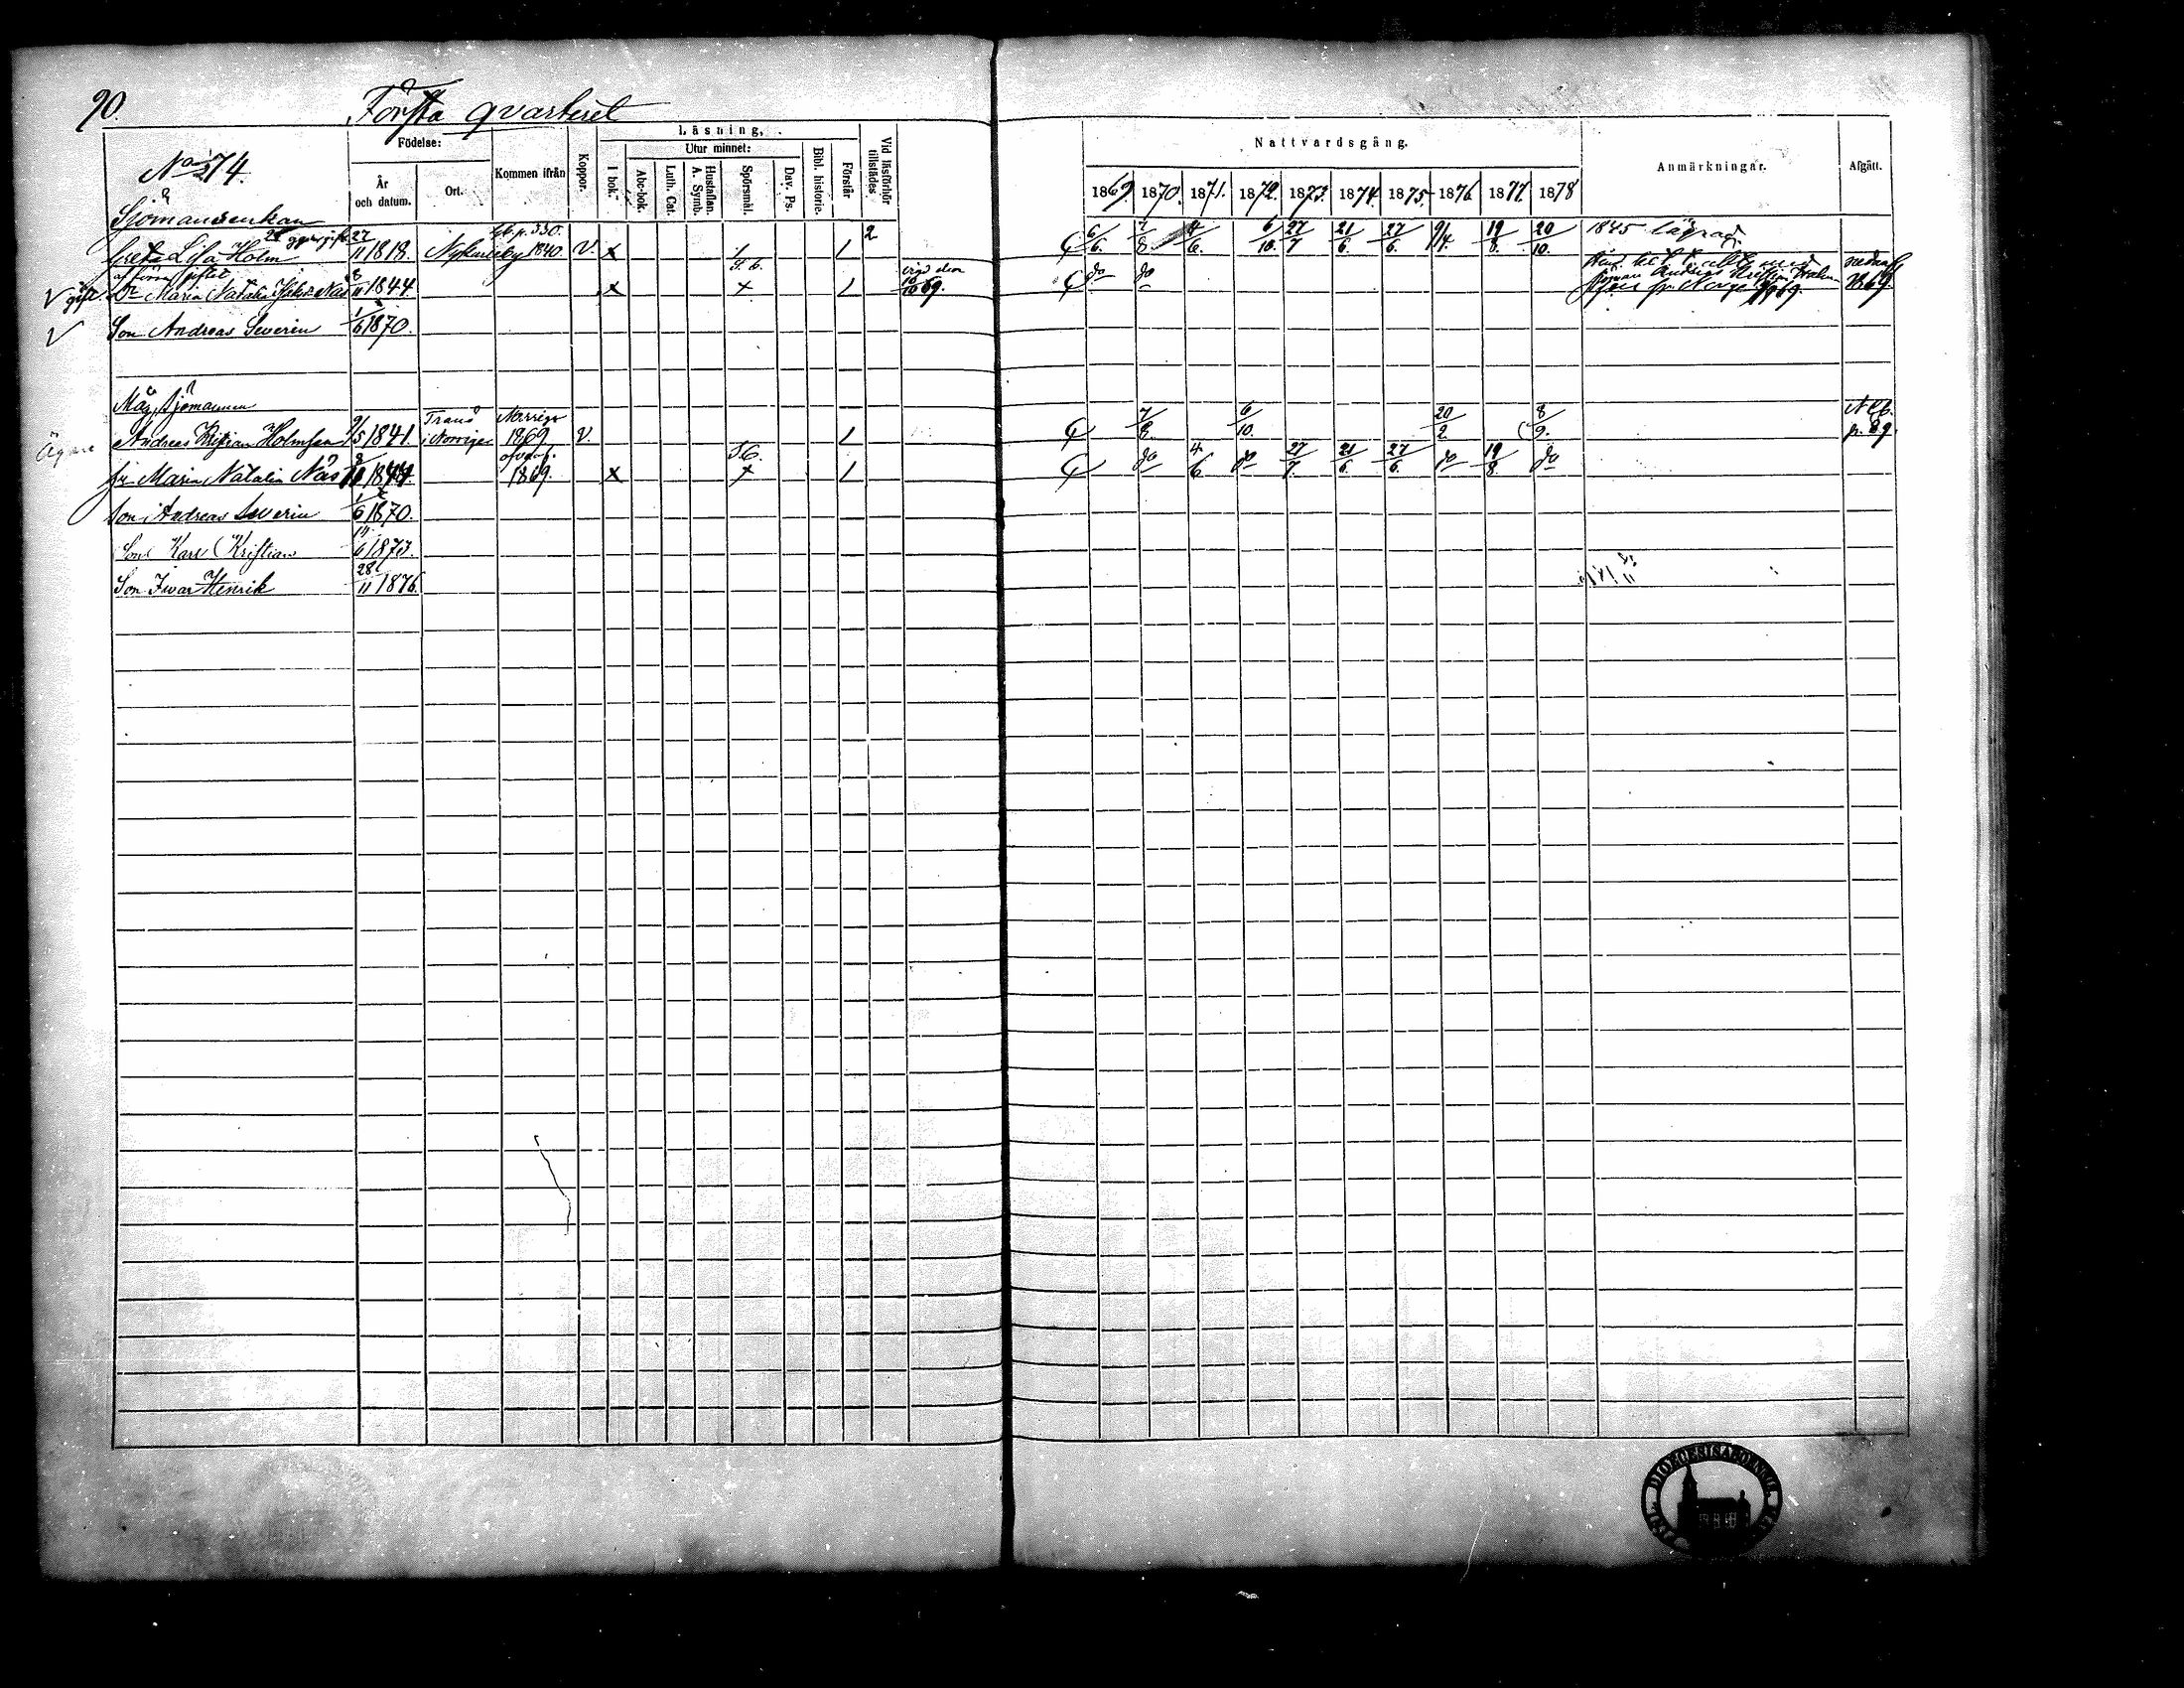 90.
Första qvarteret
No 74.
Födelse:
År och datum.
Ort.
Kommen ifrån
Koppor.
Läsning,
I bok.
Utur minnet:
Abc-bok.
Luth. Cat.
Hustaflan. A. Symb.
Spörsmål.
Dav. Ps.
Bibl. historie.
Förstår
Vid läsförhör tillstädes
Nattvardsgång.
1869. 1870. 1871. 1872. 1873. 1874. 1875. 1876 1877. 1878
Anmärkningar.
Afgått.
Sjömansenkan
Greta Lisa Holm 27/11 1818. Nykarleby 1840. V. x / / 2 6/6. 7/8. 4/6. 6/10. 27/7 21/6. 27/6. 9/4. 19/8. 20/10. 1845
af förra giftet
gift. Dr Maria Natalia Näs 8/11 1844. x + / 10/10 69. do do
Son Andreas Severin 1/6 1870.
Måg, Sjömannen
Ägare Andreas Kristian Holmsen 9/5 1841. Tranö i Norrige Norrige 1869 V. / 7/8. 6/10. 20/2. 8/9. p. 89.
hu Maria Natalia Näs 8/11 1844. 1869. x + / do 4/6 do 27/7. 21/6. 27/6. do 19/8. do
Son Andreas Severin 1/6 1870.
Son Karl Kristian 6/1873.
Son Ivar Henrik 28/11 1876.